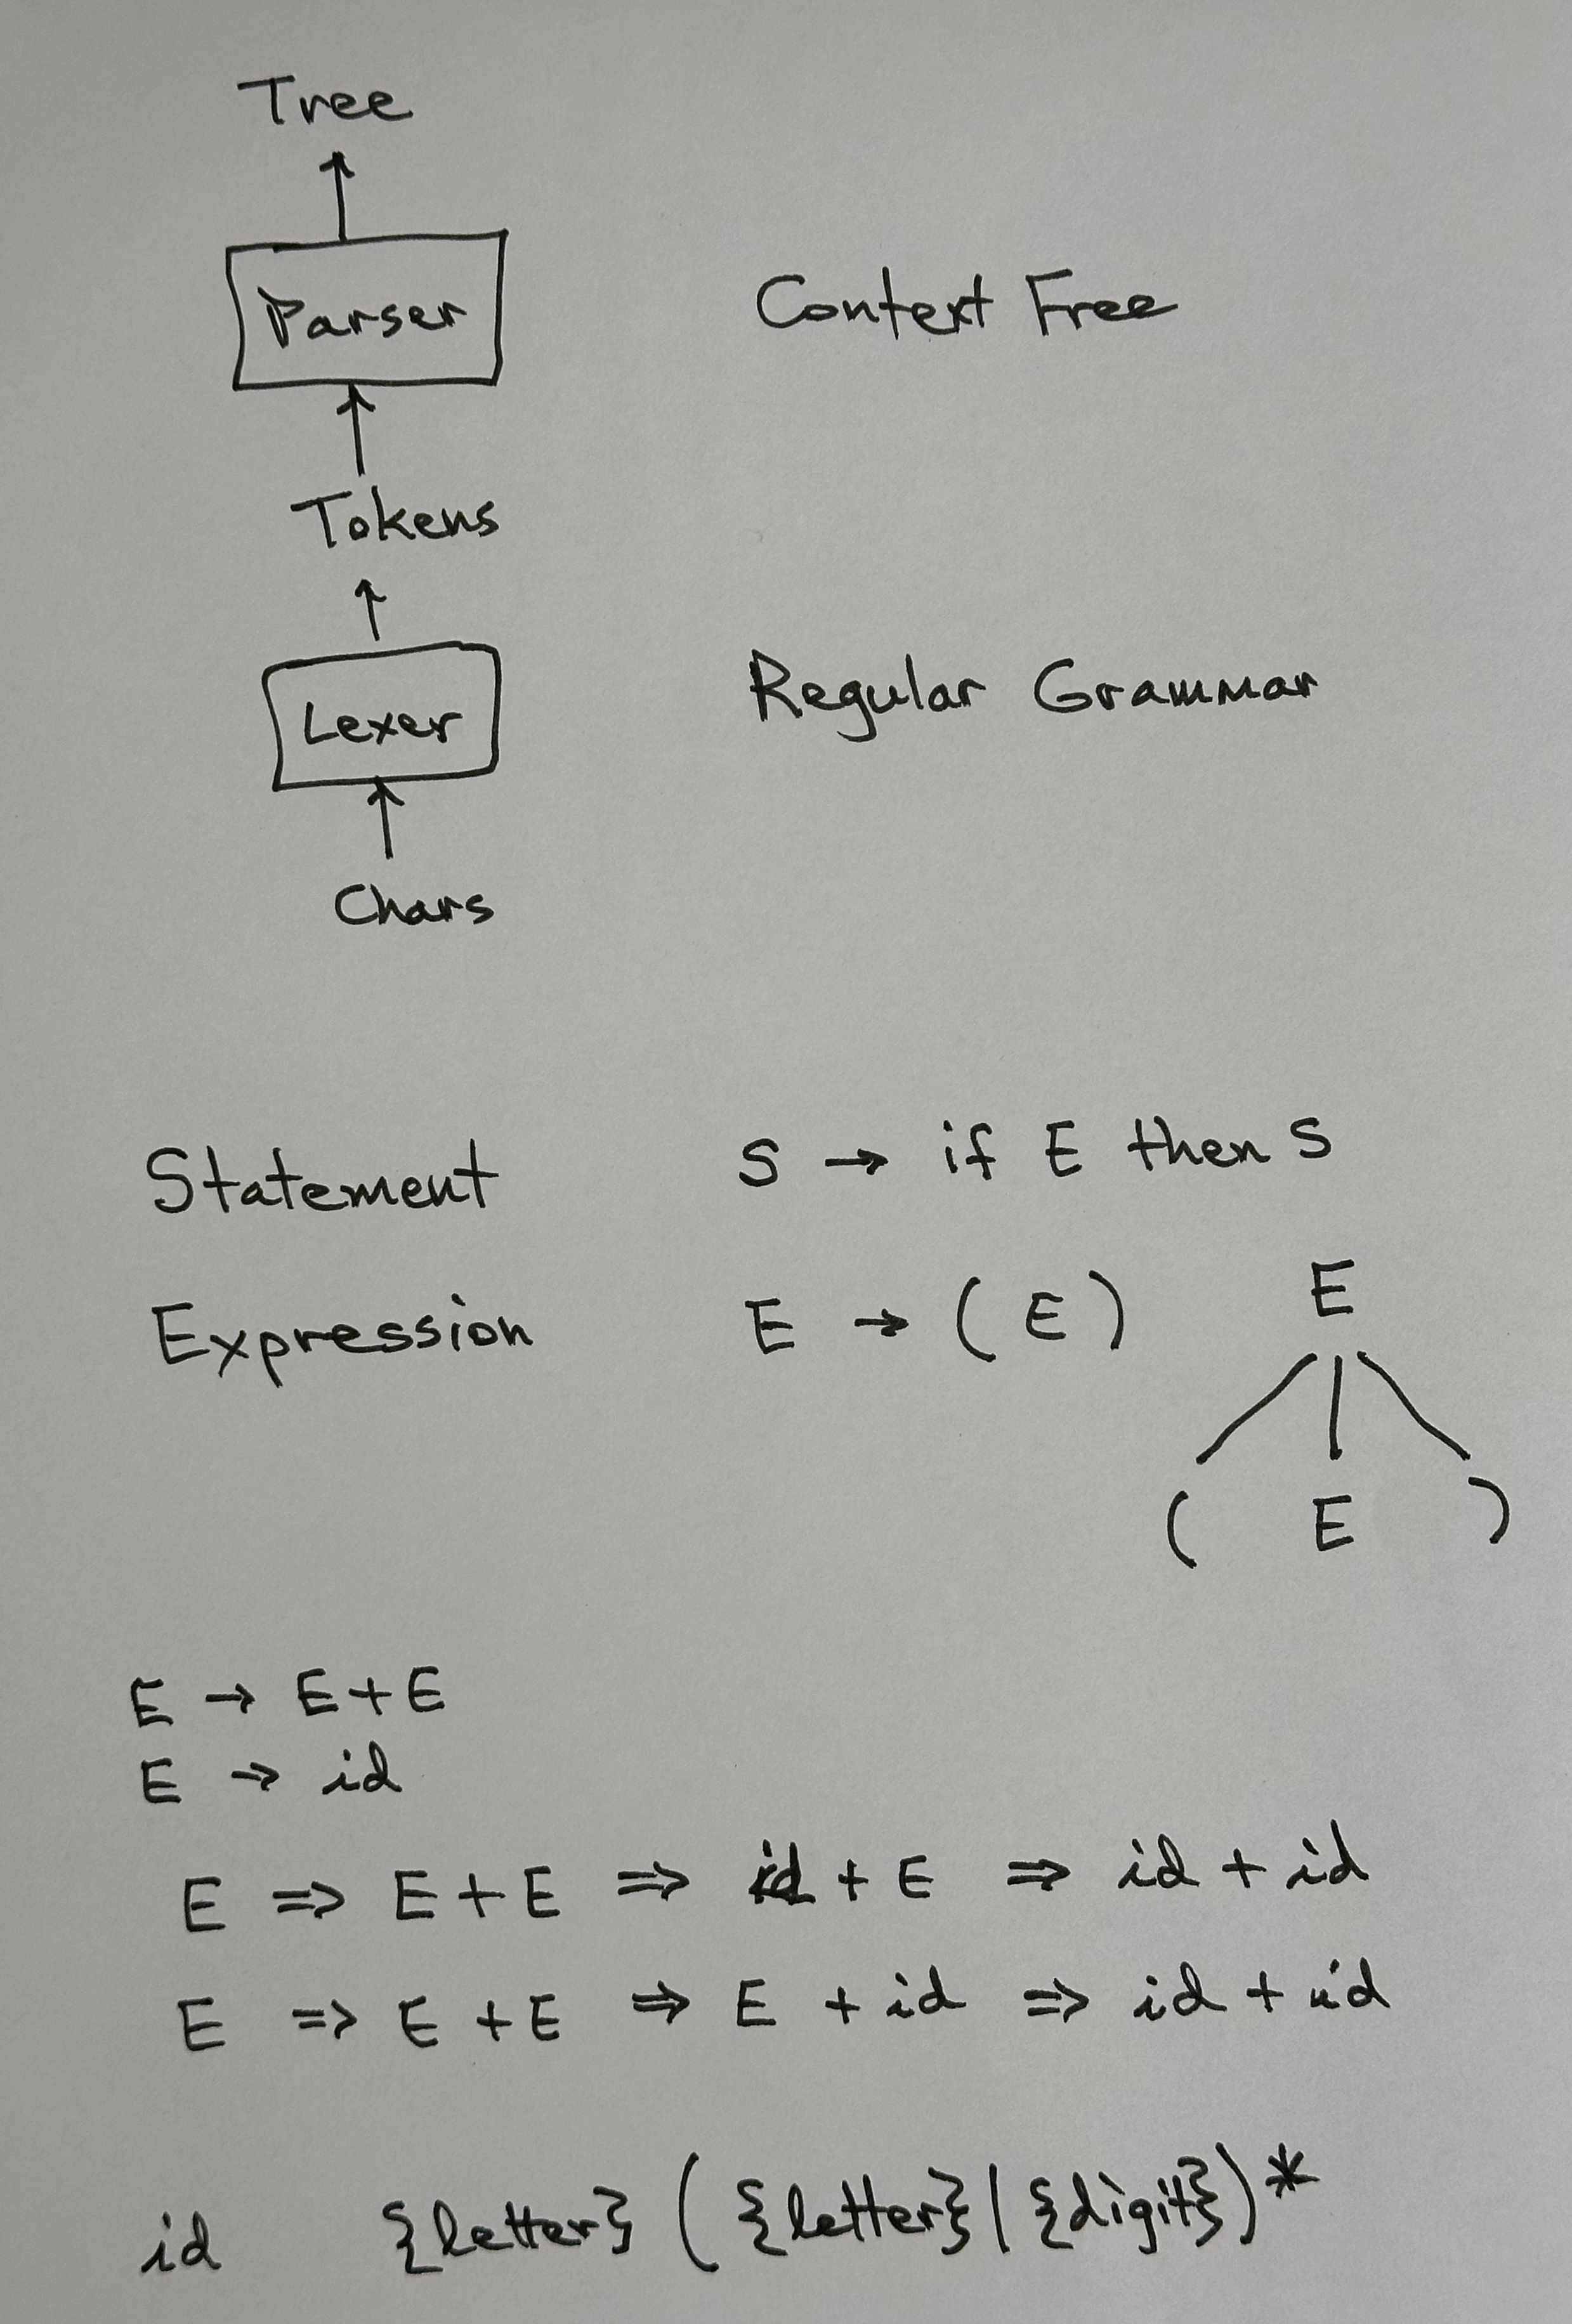 Tree
Parser Context Free
Tokens
Lexer Regular Grammar
Chars
Statement S → if E then S
E
Expression E → ( E )
( E )
E → E + E
E → id
E ⇒ E + E ⇒ id + E ⇒ id + id
E ⇒ E + E ⇒ E + id ⇒ id + id
id {letter} ( {letter} | {digit} )*